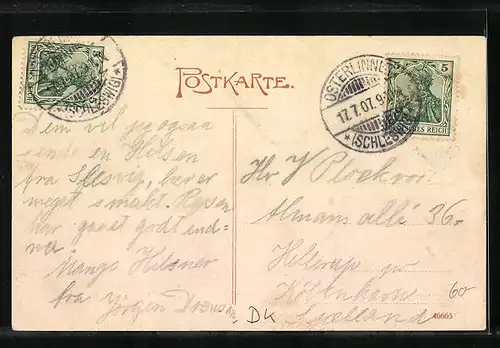 POSTKARTE.
ÖSTERLINNET
17.7.07.9-
* (SCHLESWIG)
5
DEUTSCHES REICH
Dem vil jeg ogsaa
sende en Hilsen
fra Slesvig, her er
meget smukt Rejsen
har gaaet godt end-
nu
Mange Hilsner
fra Jörgen
Hr V
Almans allé 36
Hellerup
Sjælland
DK
60
46665